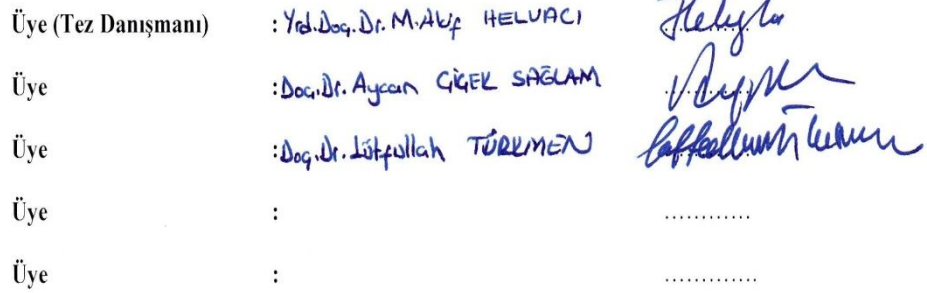 Üye (Tez Danışmanı) : Yrd.Doç.Dr. M.Akif HELVACI
Üye :Doç.Dr. Aycan ÇİÇEK SAĞLAM
Üye :Doç.Dr. Lütfullah TÜRKMEN
Üye : ............
Üye : .............